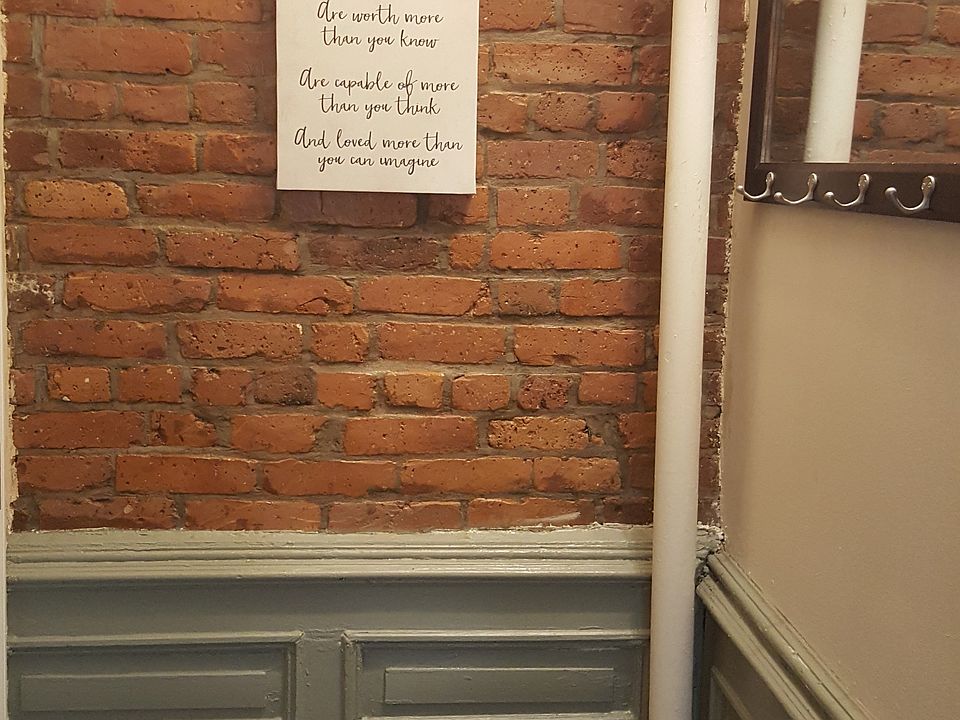 Are worth more
than you know
Are capable of more
than you think
And loved more than
you can imagine